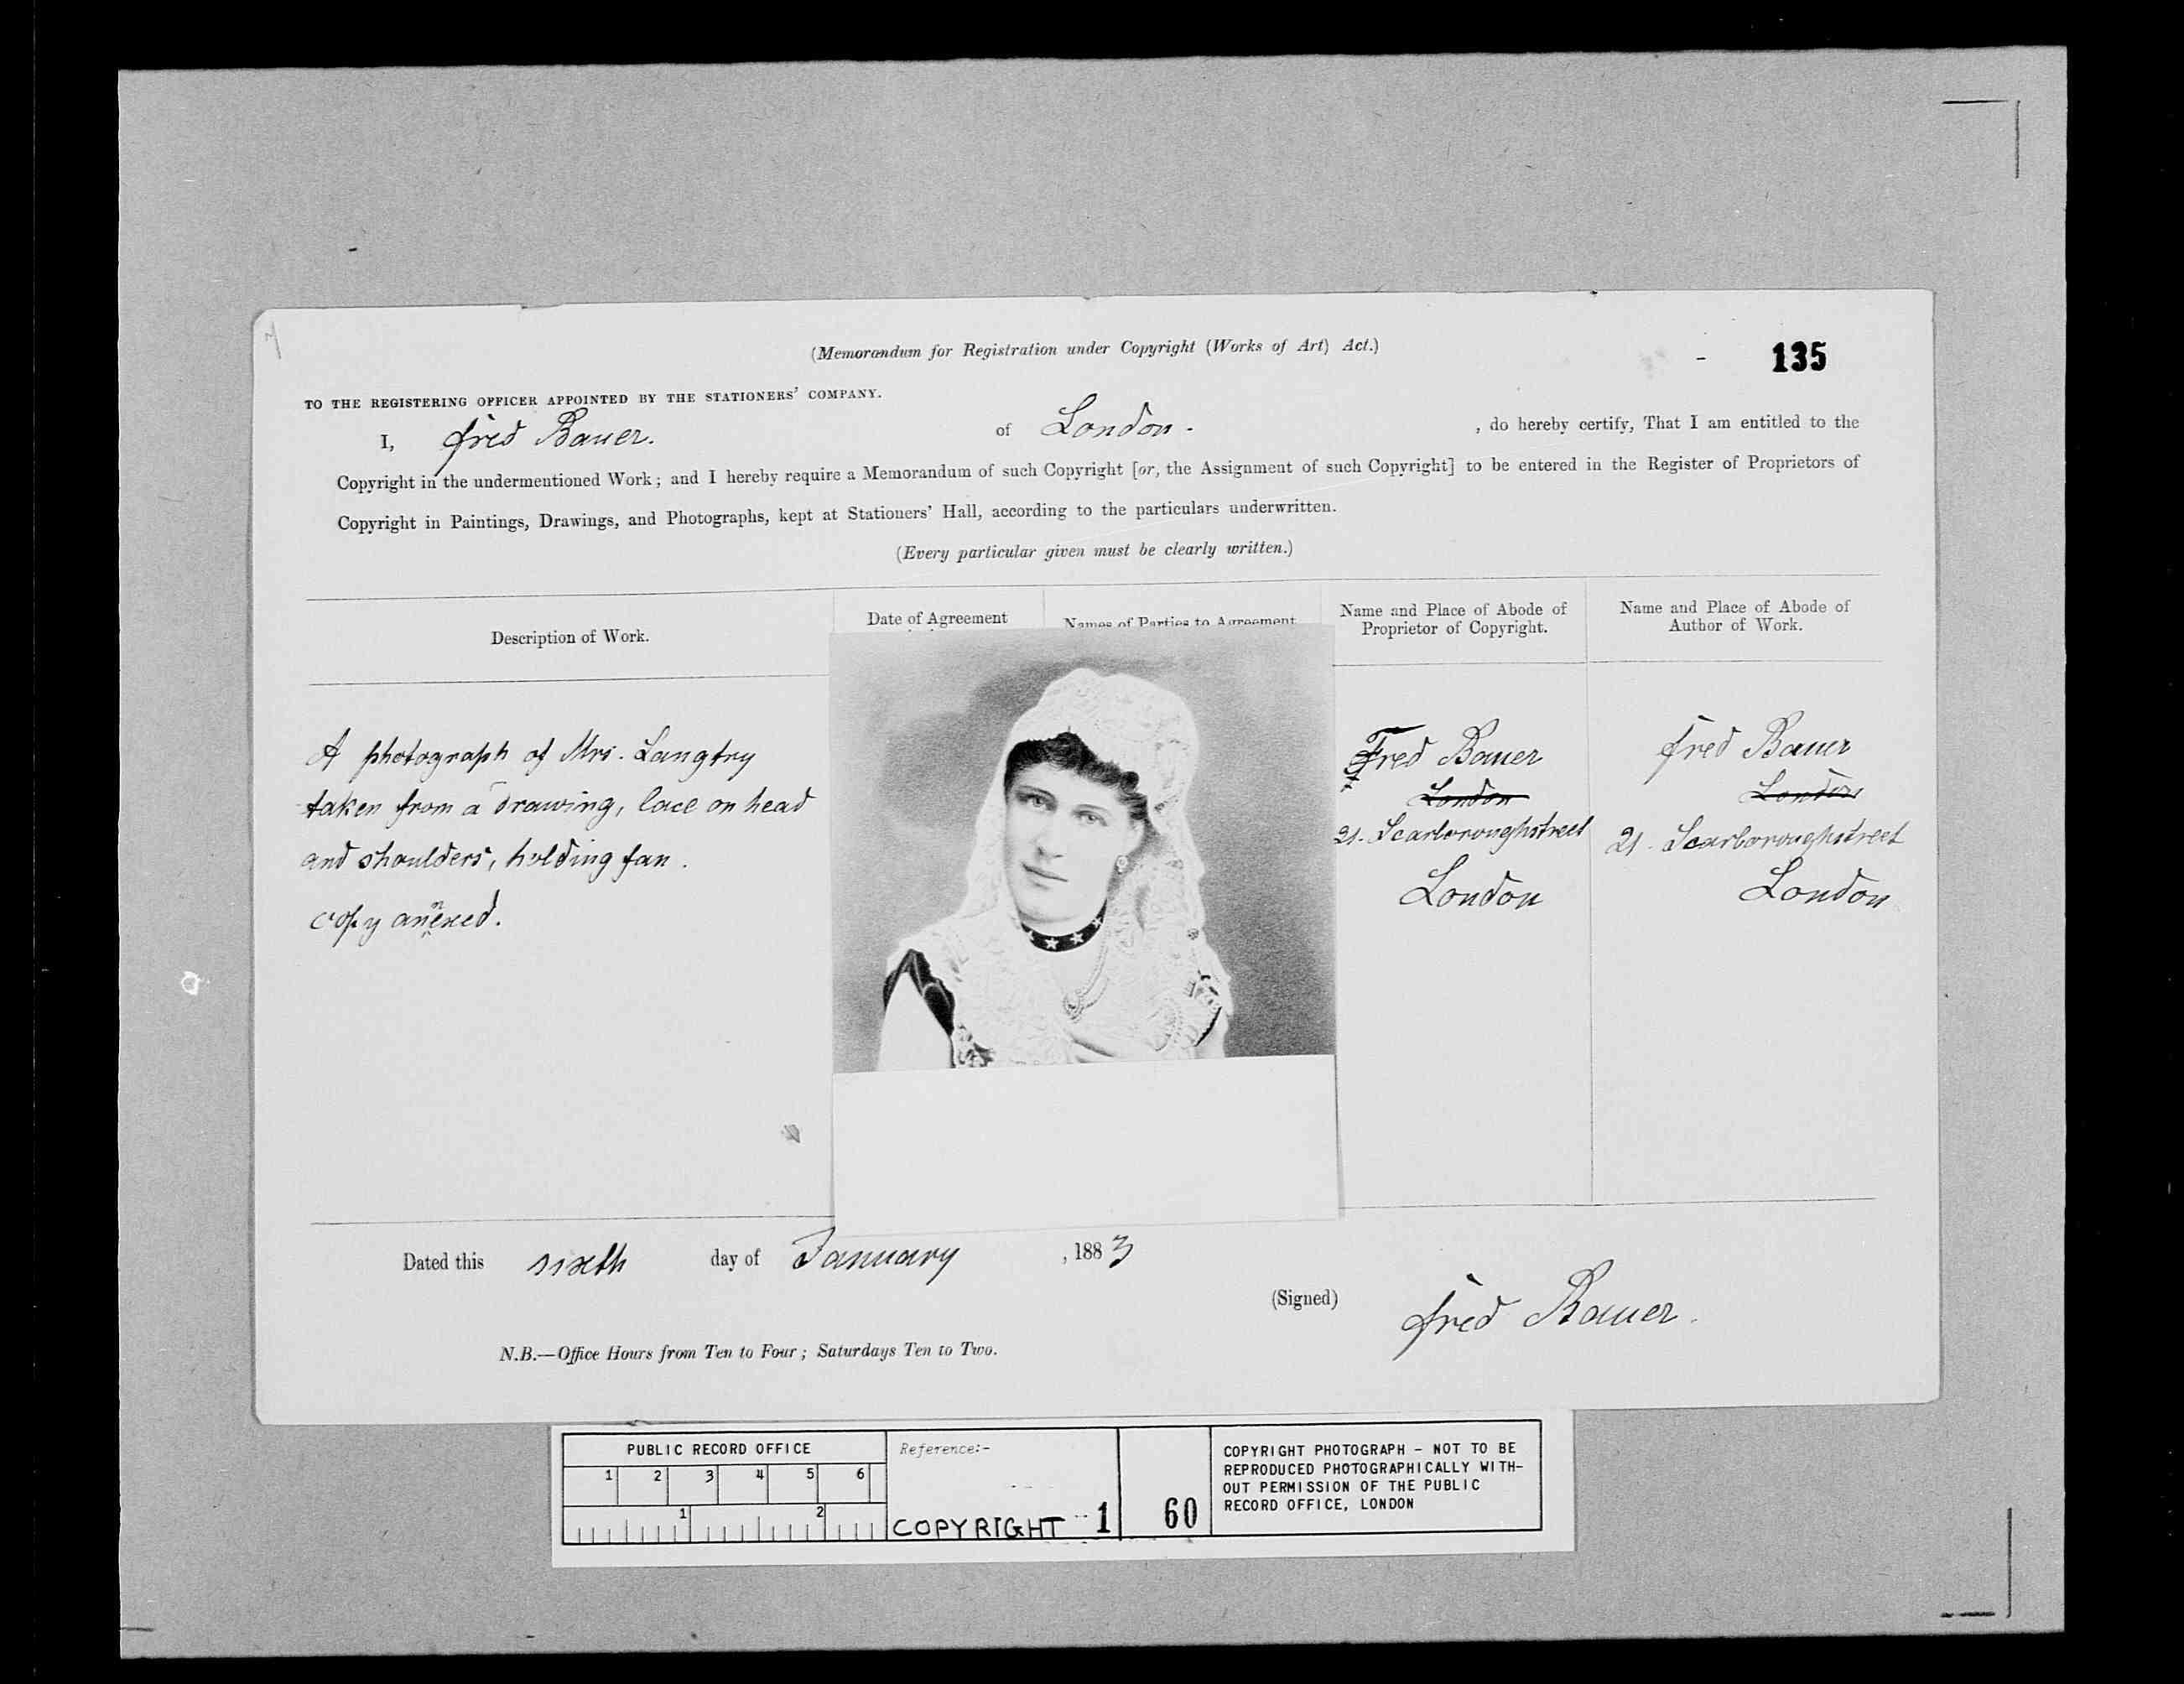 (Memorandum for Registration under Copyright (Works of Art) Act.)
135
TO THE REGISTERING OFFICER APPOINTED BY THE STATIONERS' COMPANY.
I, Fred Bauer. of London. , do hereby certify, That I am entitled to the
Copyright in the undermentioned Work; and I hereby require a Memorandum of such Copyright [or, the Assignment of such Copyright] to be entered in the Register of Proprietors of
Copyright in Paintings, Drawings, and Photographs, kept at Stationers' Hall, according to the particulars underwritten.
(Every particular given must be clearly written.)
Description of Work.
A photograph of Mrs. Langtry
taken from a drawing, lace on head
and shoulders, holding fan.
copy annexed.
Date of Agreement
Names of Parties to Agreement
Name and Place of Abode of
Proprietor of Copyright.
Fred Bauer
London
21. Scarboroughstreet
London
Name and Place of Abode of
Author of Work.
Fred Bauer
London
21. Scarboroughstreet
London
Dated this sixth day of January , 1883
(Signed) Fred Bauer.
N.B.—Office Hours from Ten to Four; Saturdays Ten to Two.
PUBLIC RECORD OFFICE
1 2 3 4 5 6
1 2
Reference:-
COPYRIGHT 1
60
COPYRIGHT PHOTOGRAPH - NOT TO BE
REPRODUCED PHOTOGRAPHICALLY WITH-
OUT PERMISSION OF THE PUBLIC
RECORD OFFICE, LONDON